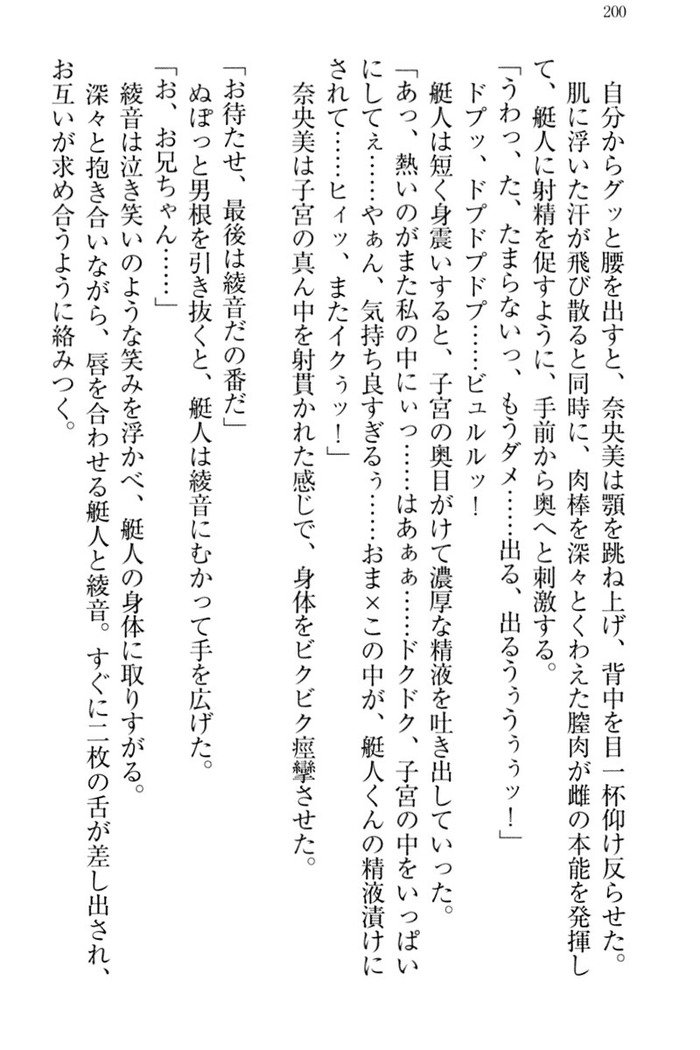 200
自分からグッと腰を出すと、奈央美は顎を跳ね上げ、背中を目一杯仰け反らせた。
肌に浮いた汗が飛び散ると同時に、肉棒を深々とくわえた膣肉が雌の本能を発揮し
て、艇人に射精を促すように、手前から奥へと刺激する。
「うわっ、た、たまらないっ、もうダメ……出る、出るうぅうぅぅッ！」
ドプッ、ドプドプドプ……ビュルルッ！
艇人は短く身震いすると、子宮の奥目がけて濃厚な精液を吐き出していった。
「あっ、熱いのがまた私の中にぃっ……はあぁぁ……ドクドク、子宮の中をいっぱい
にしてぇ……やぁん、気持ち良すぎるぅ……おま×この中が、艇人くんの精液漬けに
されて……ヒィッ、またイクぅッ！」
奈央美は子宮の真ん中を射貫かれた感じで、身体をビクビク痙攣させた。
「お待たせ、最後は綾音だの番だ」
ぬぽっと男根を引き抜くと、艇人は綾音にむかって手を広げた。
「お、お兄ちゃん……」
綾音は泣き笑いのような笑みを浮かべ、艇人の身体に取りすがる。
深々と抱き合いながら、唇を合わせる艇人と綾音。すぐに二枚の舌が差し出され、
お互いが求め合うように絡みつく。